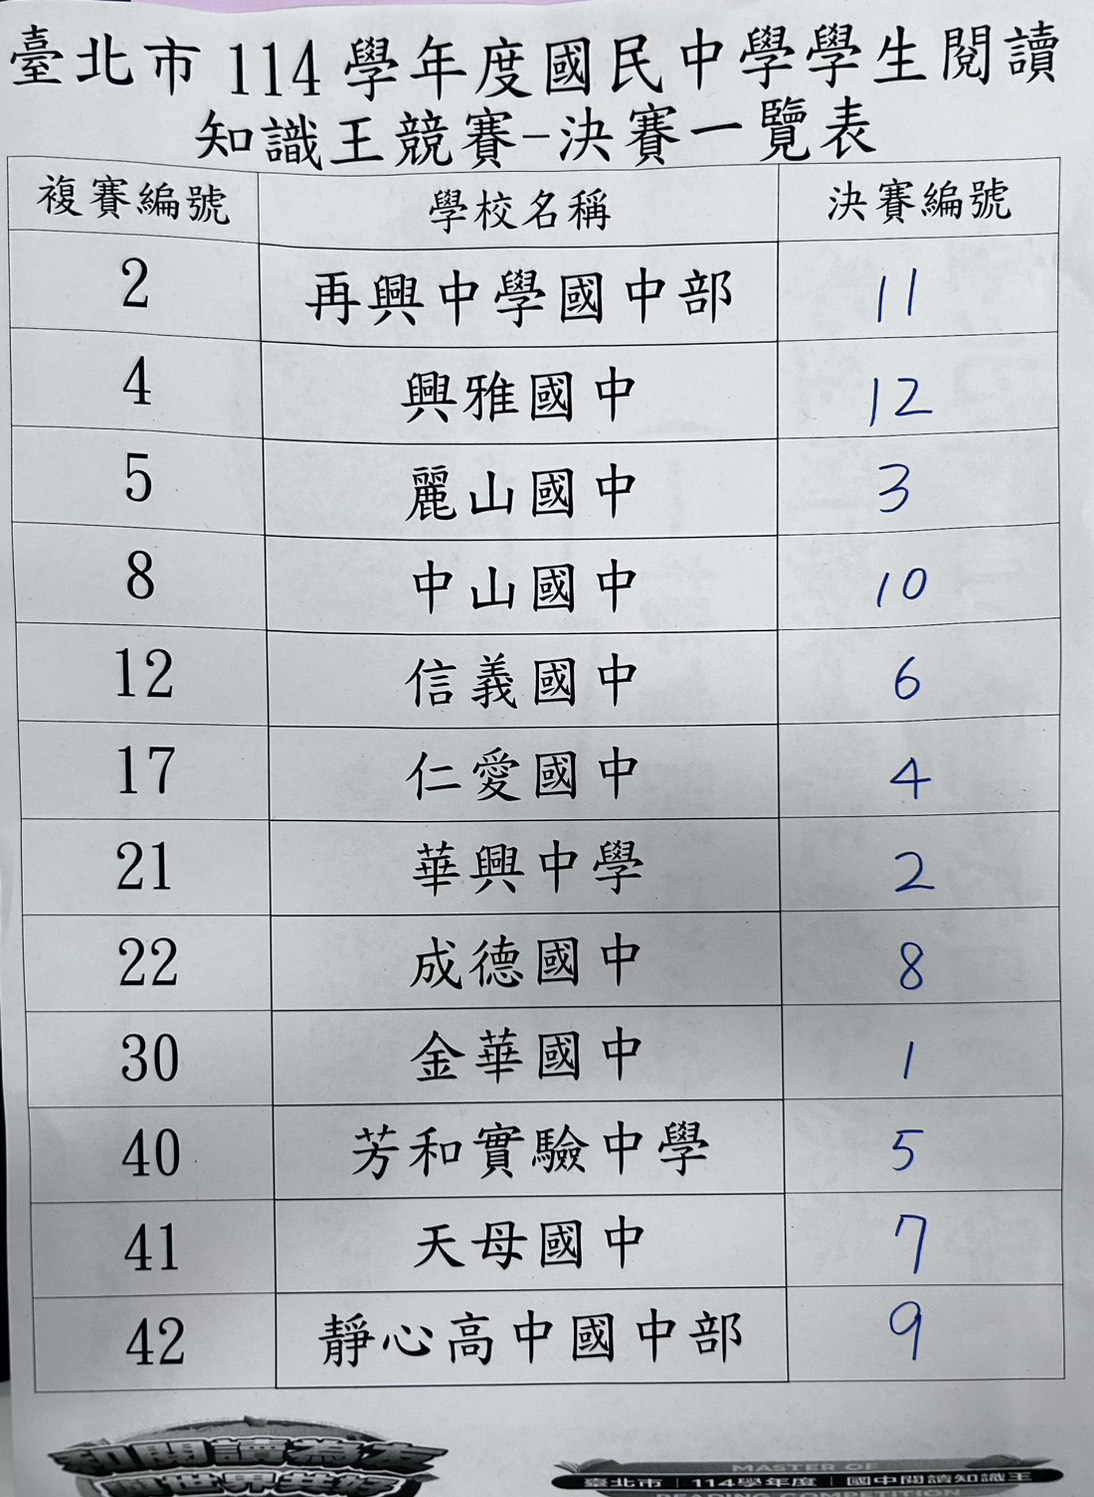 臺北市 114 學年度國民中學學生閱讀
知識王競賽-決賽一覽表
複賽編號 學校名稱 決賽編號
2 再興中學國中部 11
4 興雅國中 12
5 麗山國中 3
8 中山國中 10
12 信義國中 6
17 仁愛國中 4
21 華興中學 2
22 成德國中 8
30 金華國中 1
40 芳和實驗中學 5
41 天母國中 7
42 靜心高中國中部 9
和閱讀為友
與世界共好
MASTER OF
臺北市 | 114學年度 | 國中閱讀知識王
READING COMPETITION